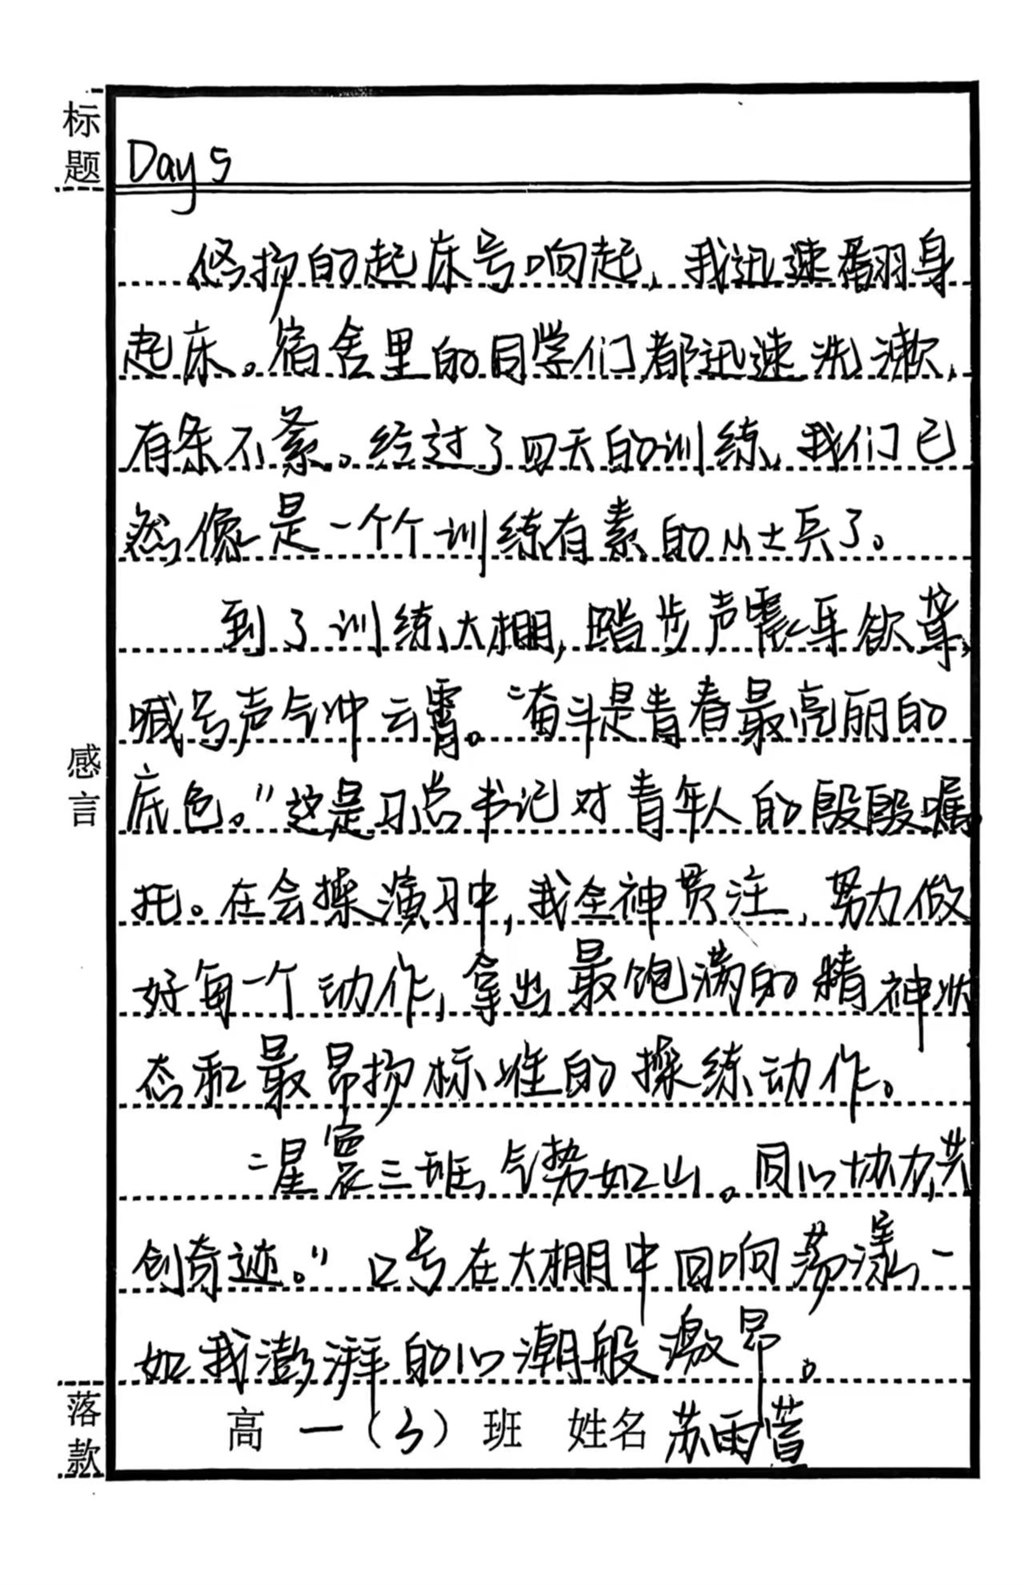 标题
Day 5
悠扬的起床号响起，我迅速翻身
起床。宿舍里的同学们都迅速洗漱，
有条不紊。经过了四天的训练，我们已
然像是一个个训练有素的小士兵了。
到了训练大棚，踏步声震耳欲聋，
喊号声气冲云霄。“奋斗是青春最亮丽的
底色。”这是习总书记对青年人的殷殷嘱
托。在会操演习中，我全神贯注，努力做
好每一个动作，拿出最饱满的精神状
态和最昂扬标准的操练动作。
“星宸三班，气势如山。同心协力，共
创奇迹。”口号在大棚中回响荡漾，一
如我澎湃的心潮般激昂。
感言
落款
高一（3）班 姓名 苏雨萱